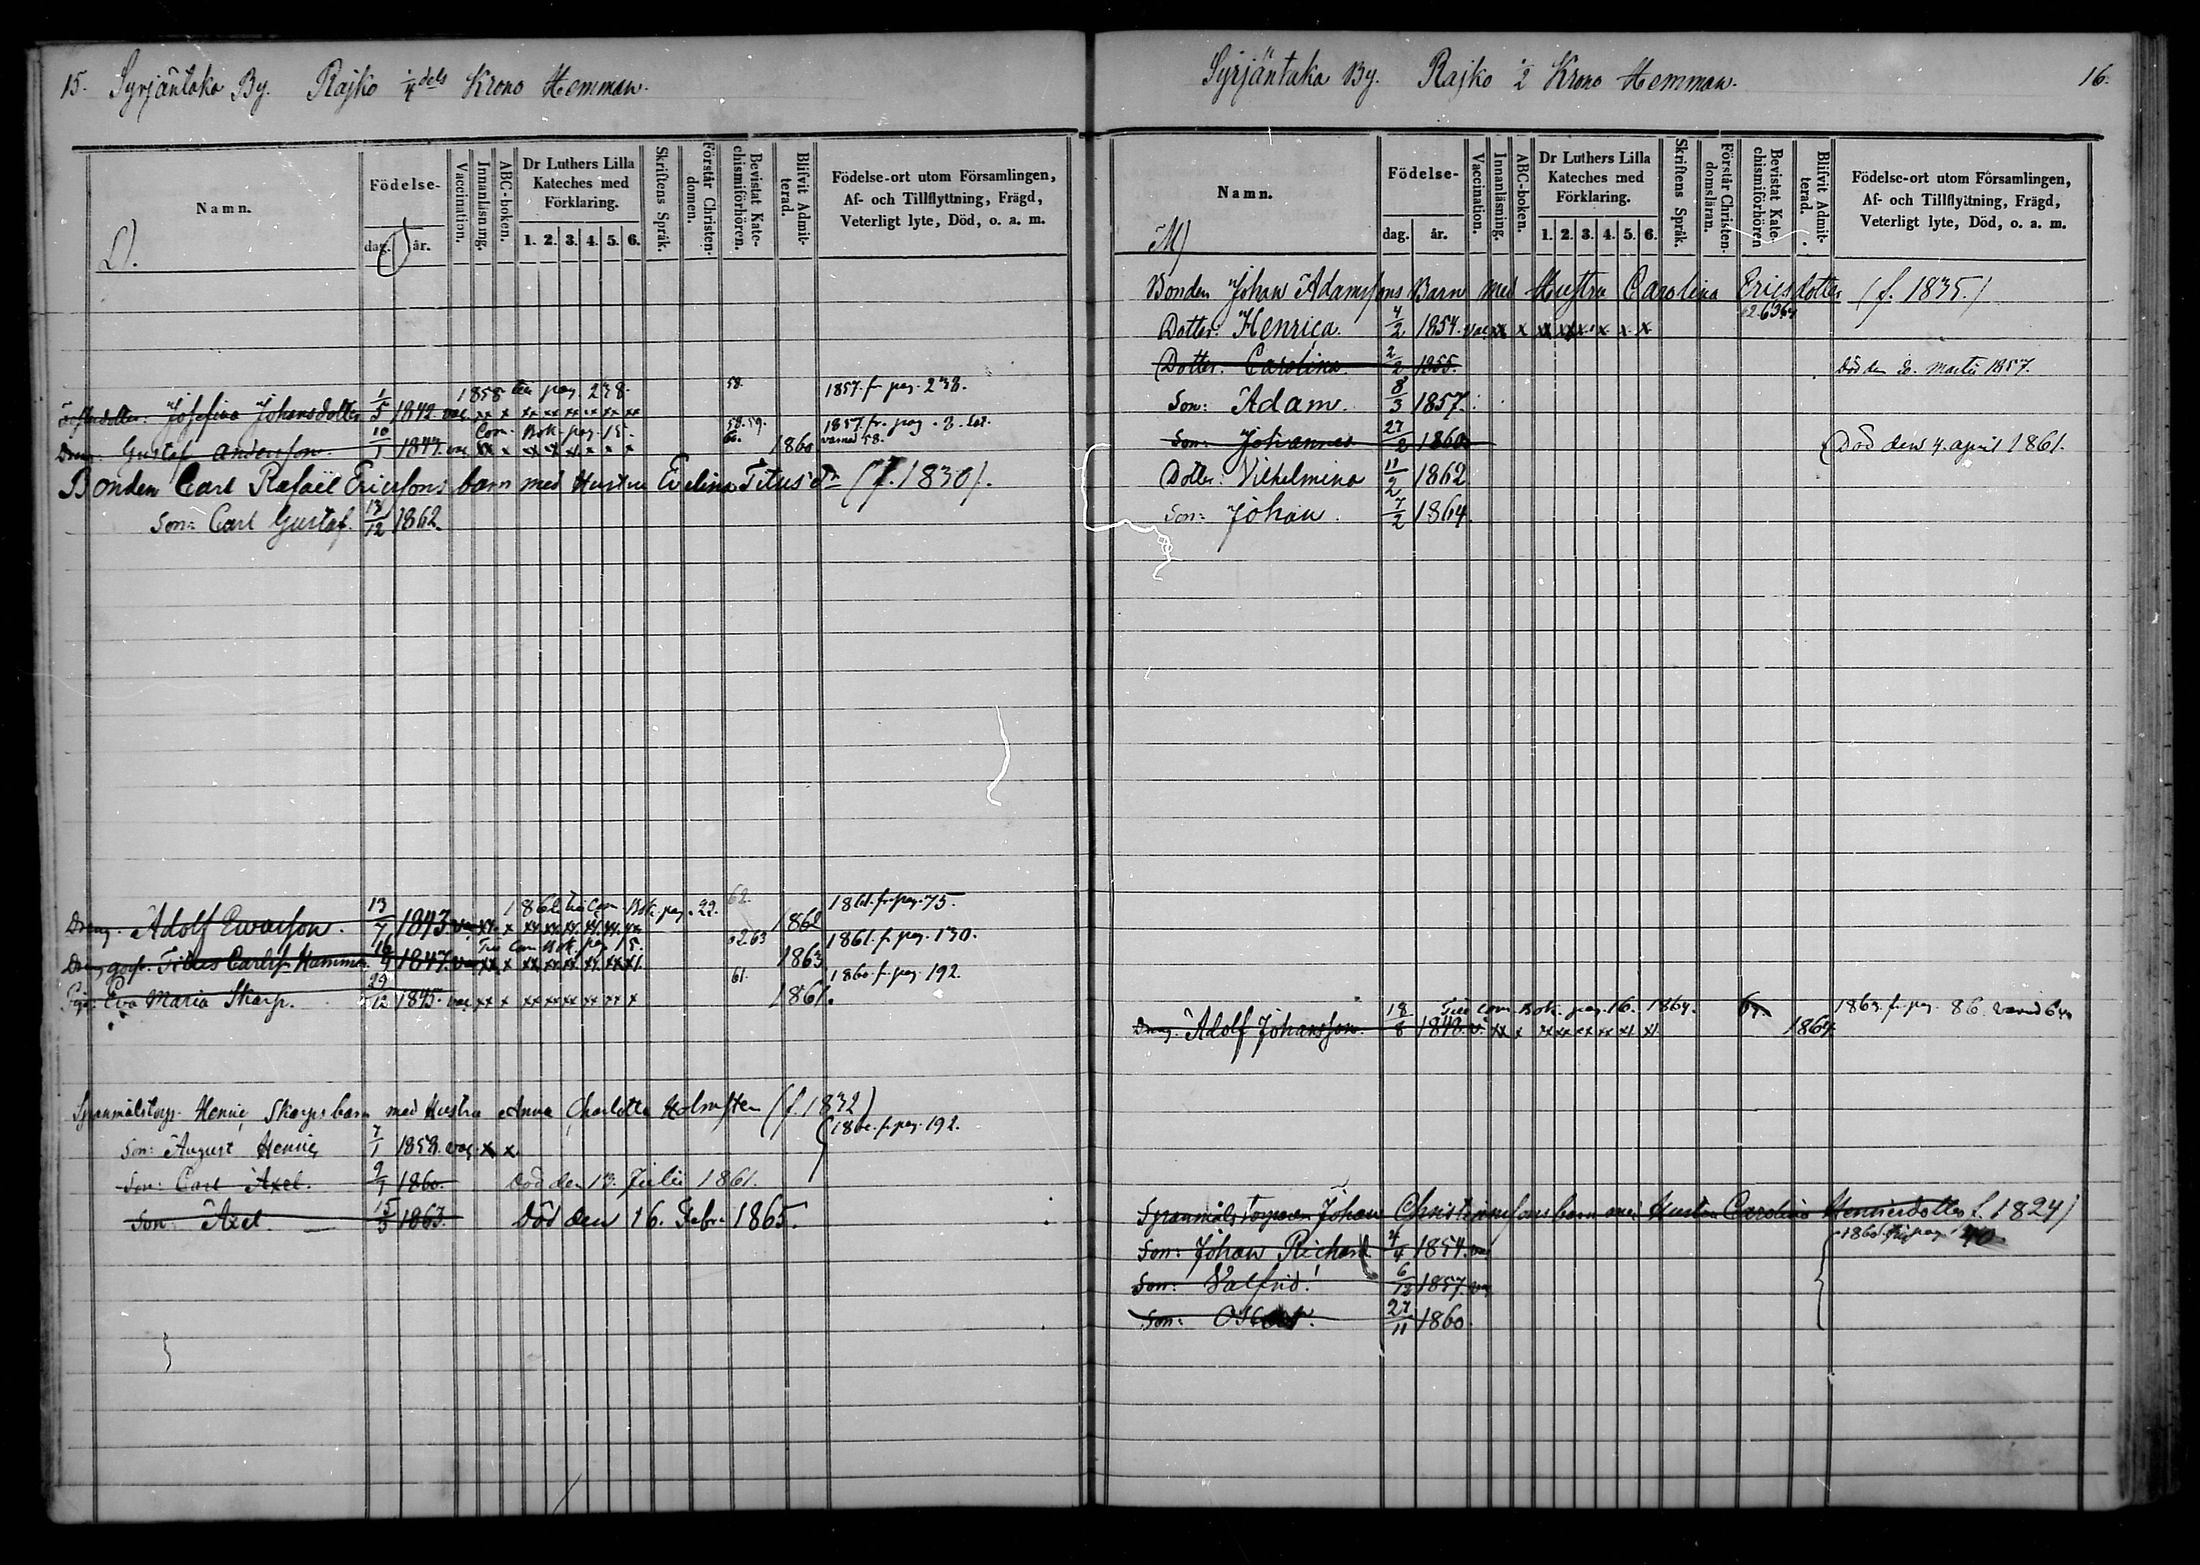 15. Syrjäntaka By. Rajko 1/4 dels Krono Hemman.
Namn.
Födelse-
dag. år.
Vaccination.
Innanläsning.
ABC-boken.
Dr Luthers Lilla Kateches med Förklaring.
1. 2. 3. 4. 5. 6.
Skriftens Språk.
Förstår Christendomen.
Bevistat Katechismiförhören.
Blifvit Admitterad.
Födelse-ort utom Församlingen,
Af- och Tillflyttning, Frägd,
Veterligt lyte, Död, o. a. m.
1858 till pag. 238. 58. 1857. fr. pag. 238.
Fosterdotter: Josefina Johansdotter 1/5 1842 vac. xx x xx xx xx xx xx xx
Com. Bok pag. 15. 58. 59. 60. 1857. fr. pag. 3.
Dräng: Gustaf Andersson 10/1 1844 vac xx x xx xx xx x x x 1860
Bonden Carl Rafael Ericssons barn med Hustru Evelina Titus dr (f. 1830).
Son: Carl Gustaf. 13/12 1862.
1862 till Com. Bok pag. 22. 62. 1861. fr. pag. 75.
Dräng. Adolf Ewarsson. 13/7 1843 vac xx x xx xx xx xx xx xx 1862
Till Com. Bok pag. 15. 62.63 1861. f. pag. 130.
Dräng goss. Titus Carlss. Hammar 1847. vac xx x xx xx xx xx xx xx 1863
61. 1860. f. pag. 192.
Pig: Eva Maria Skarp. 29/12 1845. vac xx x xx xx xx xx xx x 1861.
Spanmålstorp. Henric Skarps barn med Hustru Anna Charlotta Holmsten (f. 1832)
Son: August Henric 7/1 1858. vac. x x 1860. f. pag. 192.
Son: Carl Axel. 9/1 1860. Död den 13. Julii 1861.
Son: Axel 15/3 1863. Död den 16. Febr. 1865.
Syrjäntaka By. Rajko 1/2 Krono Hemman. 16.
Namn.
Födelse-
dag. år.
Vaccination.
Innanläsning.
ABC-boken.
Dr Luthers Lilla Kateches med Förklaring.
1. 2. 3. 4. 5. 6.
Skriftens Språk.
Förstår Christendomsläran.
Bevistat Katechismiförhören
Blifvit Admitterad.
Födelse-ort utom Församlingen,
Af- och Tillflyttning, Frägd,
Veterligt lyte, Död, o. a. m.
Bonden Johan Adamssons Barn med Hustru Carolina Ericsdotter (f. 1835.)
Dotter: Henrica 4/2 1854. vac xx x xx xx x x x x
Dotter: Carolina 2/2 1855. Död den 20. Martii 1857.
Son: Adam. 8/3 1857.
Son: Johannes 27/2 1860 Död den 4. april 1861.
Dotter: Vilhelmina 11/2 1862
Son: Johan. 7/2 1864.
Till Com. Bok. pag. 16. 1864. 1863. f. pag. 86.
Dräng. Adolf Johansson 18/8 1848. v. xx x xx xx xx xx xx xx 1864
Spanmåls torparen Johan Christianssons barn med Hustru Carolina Henricsdotter f. 1824)
Son: Johan Richard 4/4 1854. vac
Son: Valfrid. 6/12 1857. vac
Son: Oskar. 27/11 1860